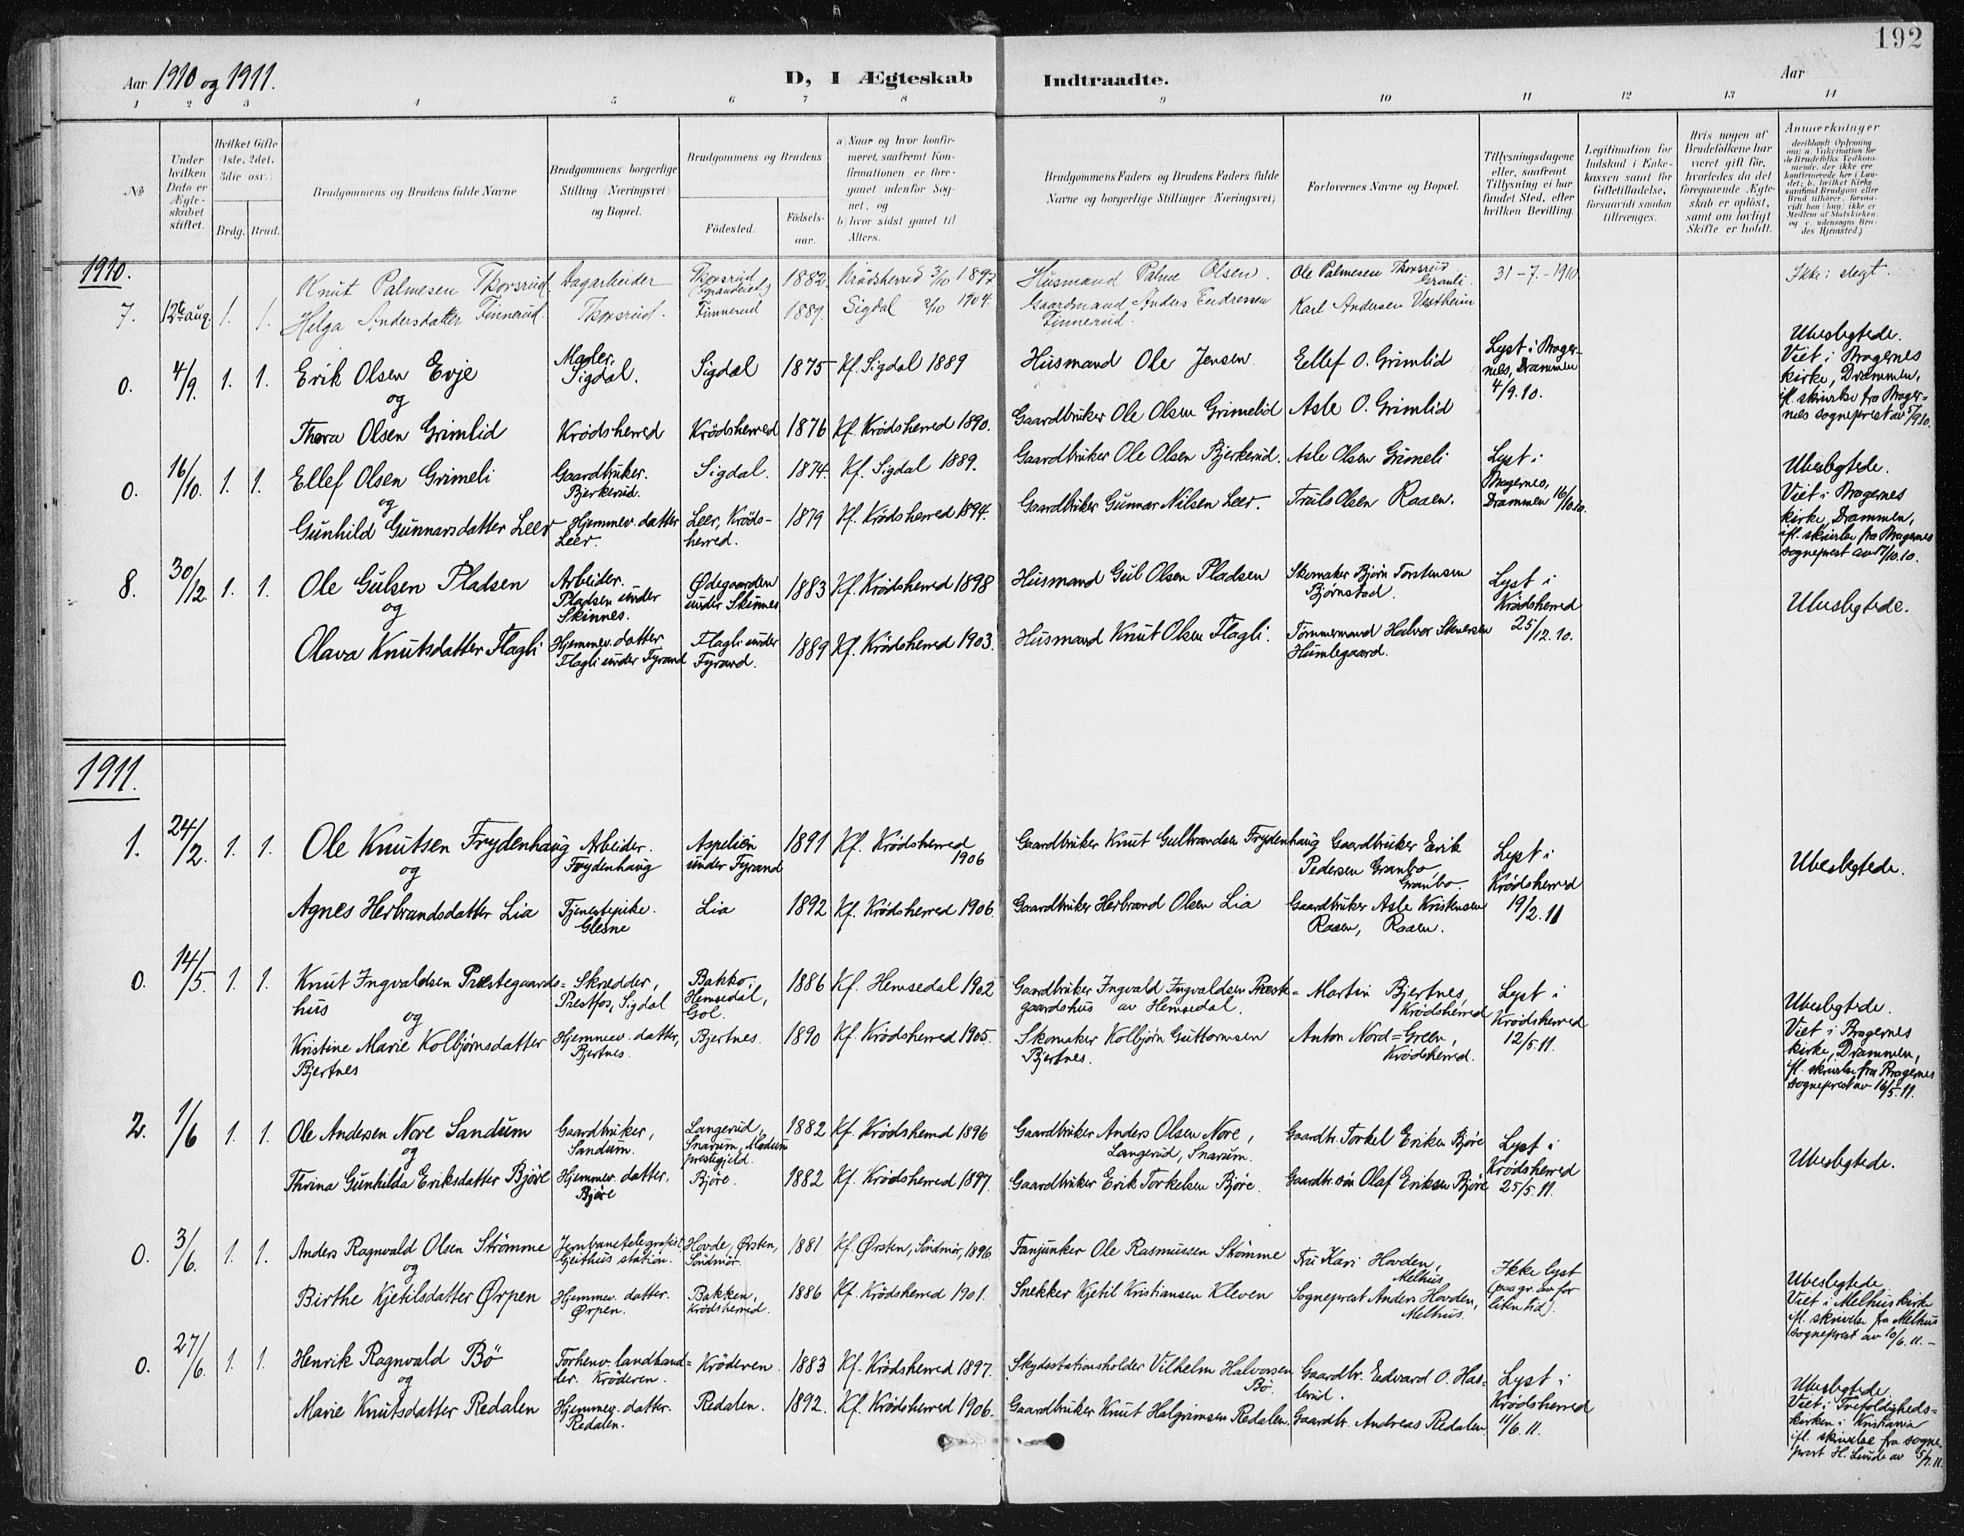 192
Aar 1910 og 1911.
D, I Ægteskab Indtraadte.
Aar
1 2 3 4 5 6 7 8 9 10 11 12 13 14
No
Under hvilken Dato er Ægteskabet stiftet.
Hvilket Gifte (1ste, 2det, 3die osv.)
Brdg. Brud.
Brudgommens og Brudens fulde Navne
Brudgommens borgerlige Stilling (Næringsvei) og Bopæl.
Brudgommens og Brudens
Fødested. Fødsels-aar.
a) Naar og hvor konfirmeret, saafremt Konfirmationen er foregaaet udenfor Sognet, og
b) hvor sidst gaaet til Alters.
Brudgommens Faders og Brudens Faders fulde Navne og borgerlige Stillinger (Næringsvei)
Forlovernes Navne og Bopæl.
Tillysningsdagene eller, saafremt Tillysning ei har fundet Sted, efter hvilken Bevilling.
Legitimation for Indskud i Enkekassen samt for Giftetilladelse, forsaavidt saadan tiltrænges.
Hvis nogen af Brudefolkene har været gift før, hvorledes da det foregaaende Ægteskab er opløst, samt om lovligt Skifte er holdt.
Anmerkninger
1910.
7. 12te aug. 1. 1. Knut Palmesen Thorsrud Dagarbeider Thorsrud 1882 Krødsherred 3/10 1897 Husmand Palme Olsen. Ole Palmesen Thorsrud 31-7-1910 Ikke i slegt.
Helga Andersdatter Finnerud. Thorsrud. Finnerud 1889. Sigdal 2/10 1904. Gaardmand Anders Endresen Finnerud. Karl Andersen Vestheim
0. 4/9. 1. 1. Erik Olsen Evje Maler. Sigdal. Sigdal 1875 Kf. Sigdal 1889 Husmand Ole Jensen Eellef O. Grimlid Lyst i Bragernes, Drammen 4/9.10. Ubeslegtede. Viet i Bragernes kirke, Drammen, ifl. skrivelse fra Bragernes sogneprest av 5/9 10.
og
Thora Olsen Grimlid Krødsherred Krødsherred 1876 Kf. Krødsherred 1890. Gaardbruker Ole Olsen Grimelid Asle O. Grimlid
0. 16/10. 1. 1. Ellef Olsen Grimeli Gaardbruker. Bjerkerud. Sigdal. 1874. Kf. Sigdal 1889. Gaardbruker Ole Olsen Bjerkerud. Asle Olsen Grimeli Lyst i Bragernes, Drammen 16/10.10. Ubeslegtede. Viet i Bragernes kirke, Drammen, ifl. skrivelse fra Bragernes sogneprest av 17/10.10.
og
Gunhild Gunnarsdatter Leer Hjemmev. datter Leer. Leer, Krødsherred. 1879 Kf. Krødsherred 1894. Gaardbruker Gunnar Nilsen Leer. Truls Olsen Raaen.
8. 30/12. 1. 1. Ole Gulsen Pladsen Arbeider. Pladsen under Skinnes. Ødegaarden under Skinnes 1883 Kf. Krødsherred 1898 Husmand Gul Olsen Pladsen Skomaker Bjørn Torstensen Bjørnstad. Lyst i Krødsherred 25/12.10. Ubeslegtede.
og
Olava Knutsdatter Flagli Hjemmev. datter Flagli under Fyrand Flagli under Fyrand. 1889 Kf. Krødsherred 1903. Husmand Knut Olsen Flagli. Tømmermand Halvor Stenersen Humlegaard.
1911.
1. 24/2. 1. 1. Ole Knutsen Frydenhaug Arbeider. Frydenhaug Aspelien under Fyrand 1891 Kf. Krødsherred 1906 Gaardbruker Knut Gulbrandsen Frydenhaug Gaardbruker Erik Pedersen Granbo, Granbo. Lyst i Krødsherred 19/2.11 Ubeslegtede.
og
Agnes Herbrandsdatter Lia Tjenestepike. Glesne Lia 1892 Kf. Krødsherred 1906. Gaardbruker Herbrand Olsen Lia Gaardbruker Asle Kristensen Raaen, Raaen.
0. 14/5. 1. 1. Knut Ingvaldsen Præstegaardshus Skrædder, Prestfos, Sigdal Bakko, Hemsedal, Gol. 1886 Kf. Hemsedal 1902 Gaardbruker Ingvald Ingvaldsen Præstegaardshus av Hemsedal. Martin Bjertnes, Krødsherred Lyst i Krødsherred 12/5.11. Ubeslegtede. Viet i Bragernes kirke, Drammen, ifl. skrivelse fra Bragernes sogneprest av 16/5.11.
og
Kristine Marie Kolbjørnsdatter Bjertnes Hjemmev. datter, Bjertnes. Bjertnes. 1890 Kf. Krødsherred 1905. Skomaker Kolbjørn Guttormsen Bjertnes. Anton Nord=Green, Krødsherred.
2. 1/6 1. 1. Ole Andersen Nore Sandum Gaardbruker, Sandum. Langerud, Snarum, Modum prestegjeld. 1882 Kf. Krødsherred 1896 Gaardbruker Anders Olsen Nore, Langerud, Snarum. Gaardbr. Torkel Eriksen Bjøre Lyst i Krødsherred 25/5.11. Ubeslegtede.
og
Thrina Gunhilda Eriksdatter Bjøre Hjemmev. datter. Bjøre Bjøre. 1882 Kf. Krødsherred 1897. Gaardbruker Erik Torkelsen Bjøre. Gaardbr. søn Olaf Eriksen Bjøre
0. 3/6. 1. 1. Anders Ragnvald Olsen Strømme Jernbanetelegrafist Geithus station. Hovde, Ørsten, Søndmør. 1881 Kf. Ørsten, Søndmør, 1896 Fanjunker Ole Rasmussen Strømme Fru Kari Hovden, Melhus Ikke lyst (paa gr. av for liten tid). Ubeslegtede. Viet i Melhus kirke ifl. skrivelse fra Melhus sogneprest av 10/6.11.
og
Birthe Kjetilsdatter Ørpen Hjemmev. datter. Ørpen. Bakken, Krødsherred. 1886 Kf. Krødsherred 1901. Snekker Kjetil Kristiansen Kleven Sogneprest Anders Hovden, Melhus.
0. 27/6. 1. 1. Henrik Ragnvald Bø Forhenv. landhandler. Krøderen. Krøderen 1883 Kf. Krødsherred 1897. Skydsstationsholder Vilhelm Halvorsen Bø. Gaardbr. Edvard O. Haslerud. Lyst i Krødsherred 11/6.11. Ubeslegtede. Viet i Trefoldighedskirken i Kristiania ifl. skrivelse fra sogneprest H. Lunde av 5/7.11.
og
Marie Knutsdatter Redalen Hjemmev. datter. Redalen. Redalen. 1892. Kf. Krødsherred 1906. Gaardbruker Knut Halgrimsen Redalen. Gaardbr. Andreas Redalen